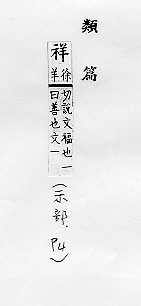 類篇
祥徐羊切說文福也一曰善也文一
(示部.P4)